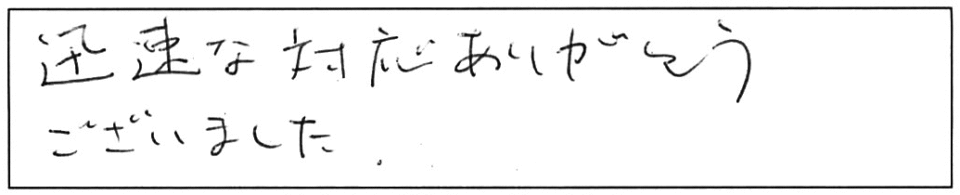 迅速な対応ありがとう
ございました.